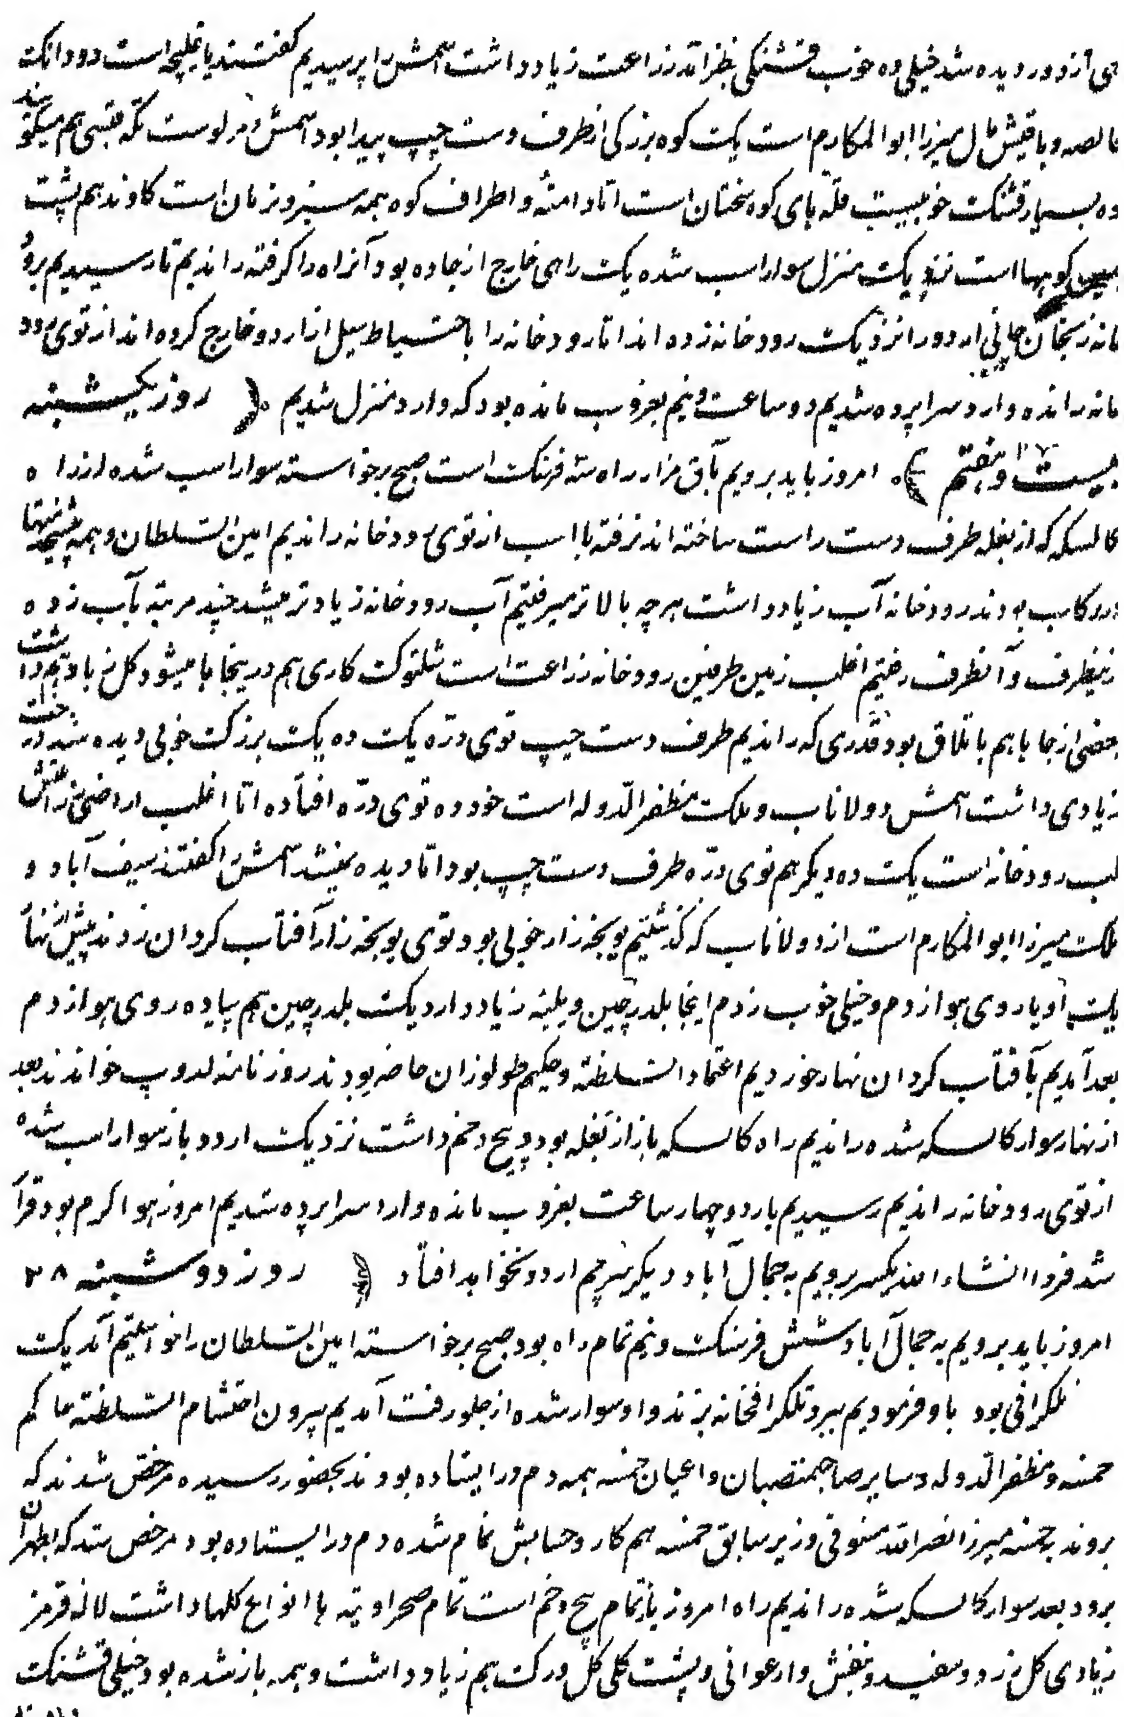 دهی از دور دیده شد خیلی ده خوب قشنگی بنظر آمد زراعت زیاد داشت اسمش را پرسیدیم گفتند یا است دو دانگ
خالصه و باقیش مال میرزا ابوالمکارم است یک کوه بزرکی از طرف دست چپ پیدا بود اسمش است تکه قبسی هم میکویند
ده بسیار قشنک خوبیست قله های کوه سختان است اما دامنه و اطراف کوه همه سبز و زمان است کاوند هم پشت
همین کوهها است نزدیک منزل سوار اسب شده یک راهی خارج از جاده بود آنراه را گرفته راندیم تا رسیدیم برود
خانه زنجان چائی اردو را نزدیک رودخانه زده اند اما رودخانه را باحتیاط سیل از اردو خارج کرده اند از توی رود
خانه رانده وارد سراپرده شدیم دو ساعت و نیم بغروب مانده بود که وارد منزل شدیم روز یکشنبه
بیست و هفتم ۲۷ امروز باید برویم بآق مزار راه سه فرسنک است صبح برخاسته سوار اسب شده از راه
کالسکه که از بغله طرف دست راست ساخته اند نرفته با اسب از توی رودخانه راندیم امین السلطان و همه پیشخدمتها
در رکاب بودند رودخانه آب زیاد داشت هرچه بالاتر میرفتیم آب رودخانه زیادتر میشد چند مرتبه بآب زده
اینطرف و آنطرف رفتیم اغلب زمین طرفین رودخانه زراعت است شلتوک کاری هم در اینجاها میشود گل زیاد هم داشت
بعضی از جاها هم باتلاق بود قدری که راندیم طرف دست چپ توی دره یک ده یک بزرک خوبی دیده شد درخت
زیادی داشت اسمش دولاناب و ملک مظفرالدوله است خود ده توی دره افتاده اما اغلب اراضی زراعتش
لب رودخانه است یک ده دیکر هم توی دره طرف دست چپ بود اما دیده نمیشد اسمش را گفتند سیف آباد و
ملک میرزا ابوالمکارم است از دولاناب که گذشتیم یونجه زار خوبی بود توی یونجه زار آفتاب کردان زدند پیش از نهار
یک اویا روی هوا زدم و خیلی خوب زدم اینجا بلدرچین و یلبه زیاد دارد یک بلدرچین هم پیاده روی هوا زدم
بعد آمدیم بآفتاب کردان نهار خوردیم اعتمادالسلطنه و حکیم طولوزان حاضر بودند روزنامه لدوپ خواندند بعد
از نهار سوار کالسکه شده راندیم راه کالسکه باز از بغله بود و پیچ و خم داشت نزدیک اردو باز سوار اسب شده
از توی رودخانه راندیم رسیدیم باردو چهار ساعت بغروب مانده وارد سراپرده شدیم امروز هوا گرم بود قرار
شد فردا انشاءالله یکسر برویم به جمال آباد دیکر سرچم اردو نخواهد افتاد روز دوشنبه ۲۸
امروز باید برویم به جمال آباد شش فرسنک و نیم تمام راه بود صبح برخاسته امین السلطان را خواستیم آمد یک
تلگرافی بود باو فرمودیم ببرد تلگرافخانه بزنند و او سوار شده از جلو رفت آمدیم بیرون احتشام السلطنه حاکم
خمسه و مظفرالدوله و سایر صاحبمنصبان و اعیان خمسه همه دم در ایستاده بودند بحضور رسیده مرخص شدند که
بروند بخمسه میرزا نصرالله مستوفی وزیر سابق خمسه هم کار و حسابش تمام شده دم در ایستاده بود مرخص شد که بطهران
برود بعد سوار کالسکه شده راندیم راه امروز باز تمام پیچ و خم است تمام صحرا و تپه ها انواع گلها داشت لاله قرمز
زیادی گل زرد و سفید و بنفش و ارغوانی و پشت گلی گل ورک هم زیاد داشت و همه باز شده بود خیلی قشنک